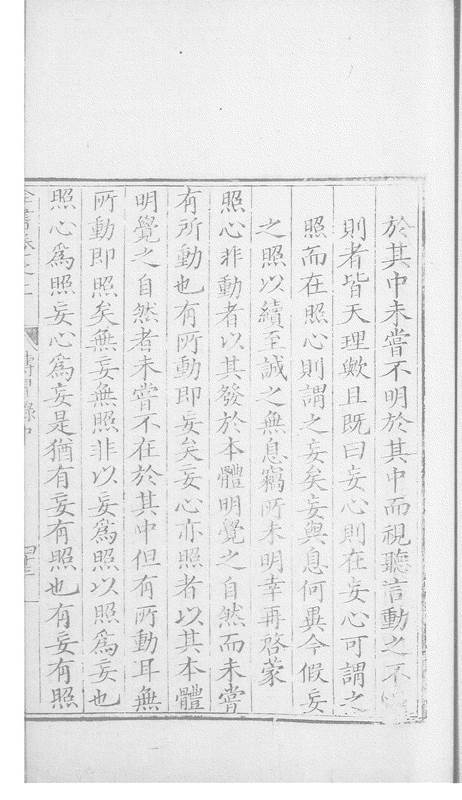 於其中未嘗不明於其中而視聽言動之不
則者皆天理歟且既曰妄心則在妄心可謂之
照而在照心則謂之妄矣妄與息何異今假妄
之照以續至誠之無息竊所未明幸再啓蒙
照心非動者以其發於本體明覺之自然而未嘗
有所動也有所動即妄矣妄心亦照者以其本體
明覺之自然者未嘗不在於其中但有所動耳無
所動即照矣無妄無照非以妄爲照以照爲妄也
照心爲照妄心爲妄是猶有妄有照也有妄有照